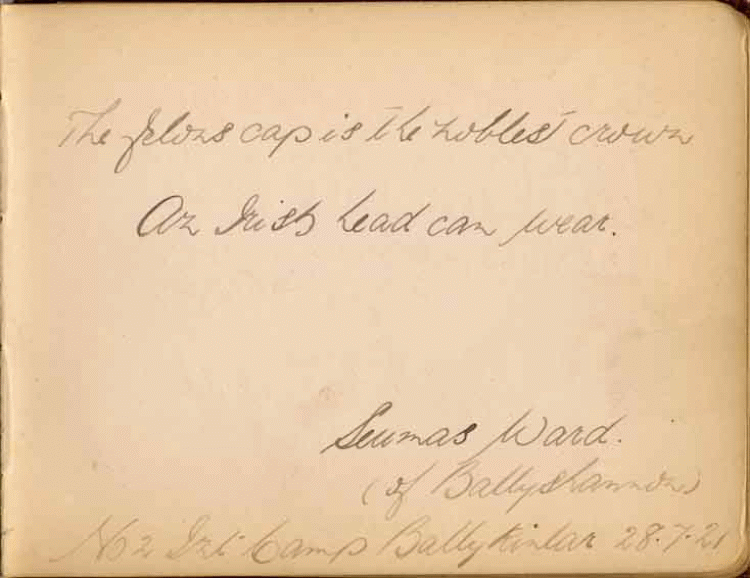 The felons cap is the noblest crown
An Irish head can wear.
Seumas Ward.
(of Ballyshannon)
No 2 Int. Camp Ballykinlar 28.7.21